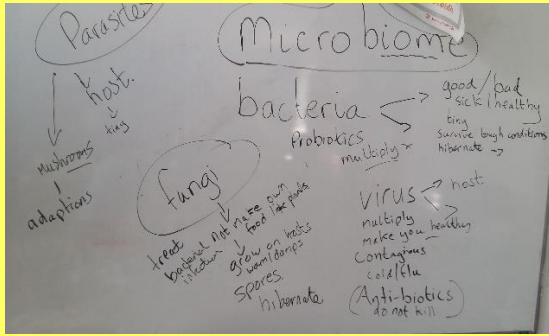 Parasites
host.
tiny
Mushrooms
adaptions
Microbiome
bacteria
Probiotics
multiply
good/bad
sick/healthy
tiny
survive tough conditions
hibernate
fungi
treat
bacterial
infection
not make own
food like plants
grow on hosts
warm/damp
spores.
hibernate
virus
host
multiply
make you healthy
Contagious
cold/flu
(Anti-biotics
do not kill)